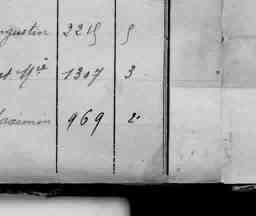 ngustin 2215 5
et Mie 1307 3
aximin 969 2